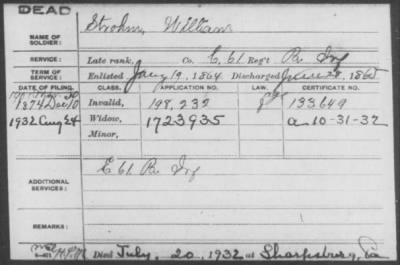 DEAD
NAME OF SOLDIER: Strohm, William
SERVICE: Late rank, Co. E, 61 Reg't Pa Inf
TERM OF SERVICE: Enlisted Jany 19, 1864 Discharged June 28, 1865
DATE OF FILING. CLASS. APPLICATION NO. LAW. CERTIFICATE NO.
1874 Dec 10 Invalid, 198,232 133649
1932 Aug 24 Widow, 1723935 a 10-31-32
Minor,
ADDITIONAL SERVICES: E 61 Pa Inf
REMARKS:
Died July 20, 1932 at Sharpsburg, Pa